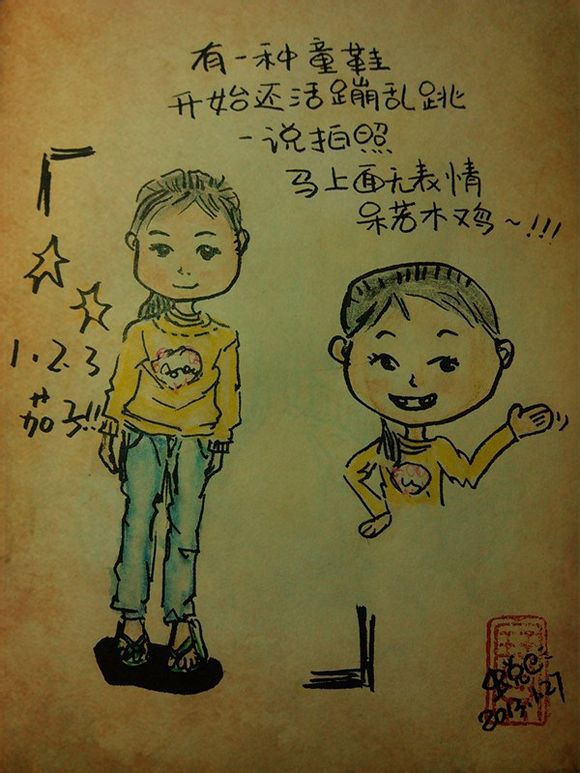 有一种童鞋
开始还活蹦乱跳
一说拍照
马上面无表情
呆若木鸡~!!!
1.2.3
茄子!!
2013.1.27